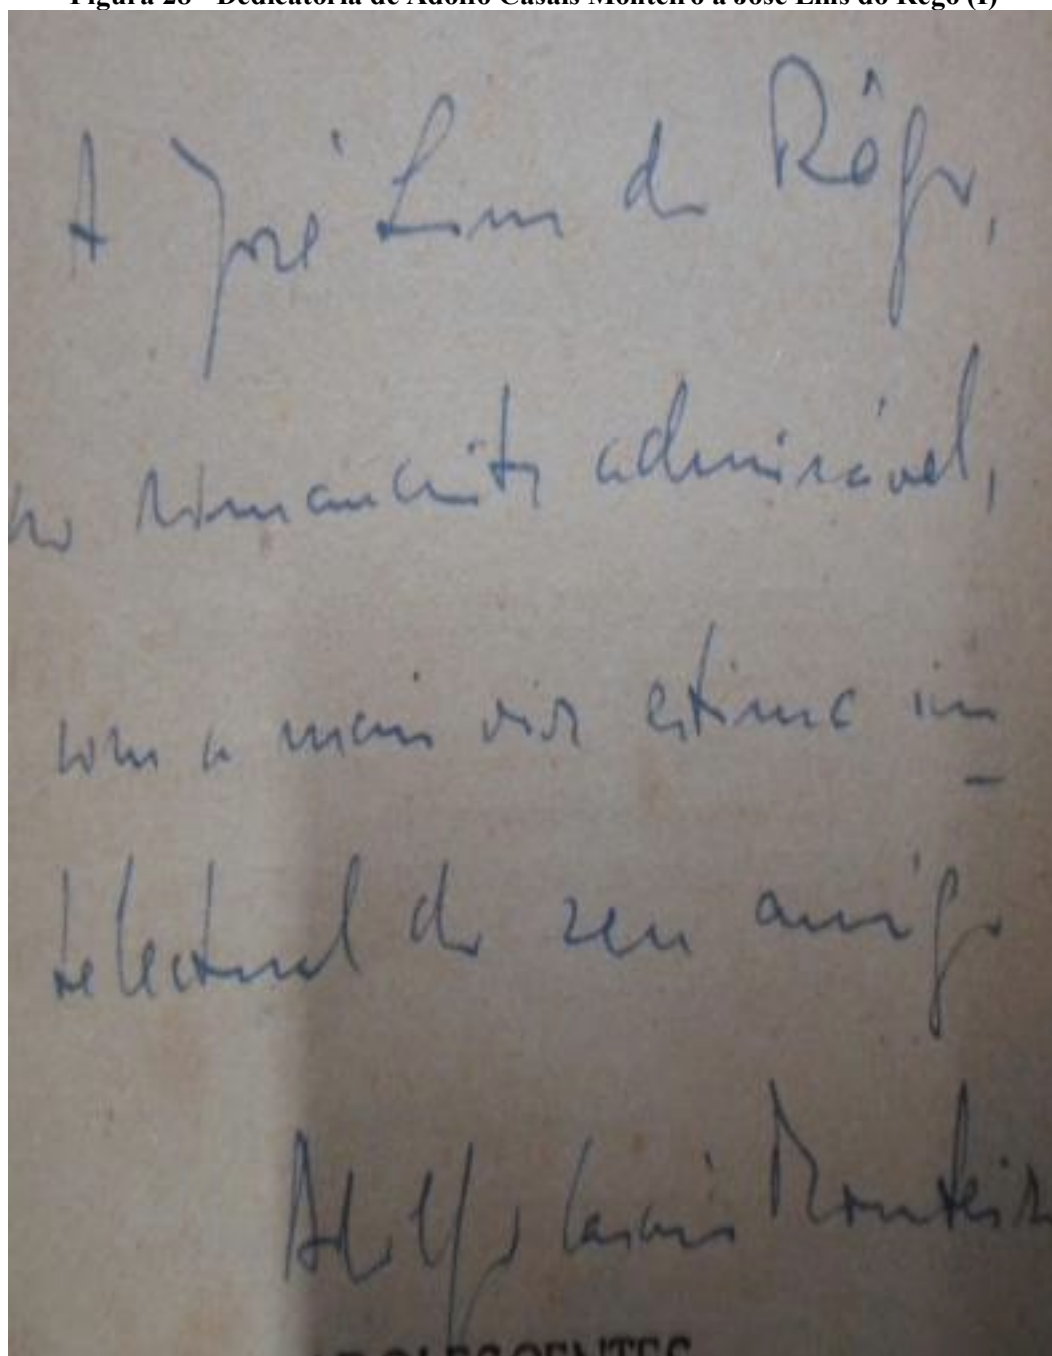 Figura 28 - Dedicatória de Adolfo Casais Monteiro a José Lins do Rego (I)
A José Lins do Rêgo,
ao romancista admirável,
com a mais viva estima in-
telectual do seu amigo
Adolfo Casais Monteiro
ADOLESCENTES